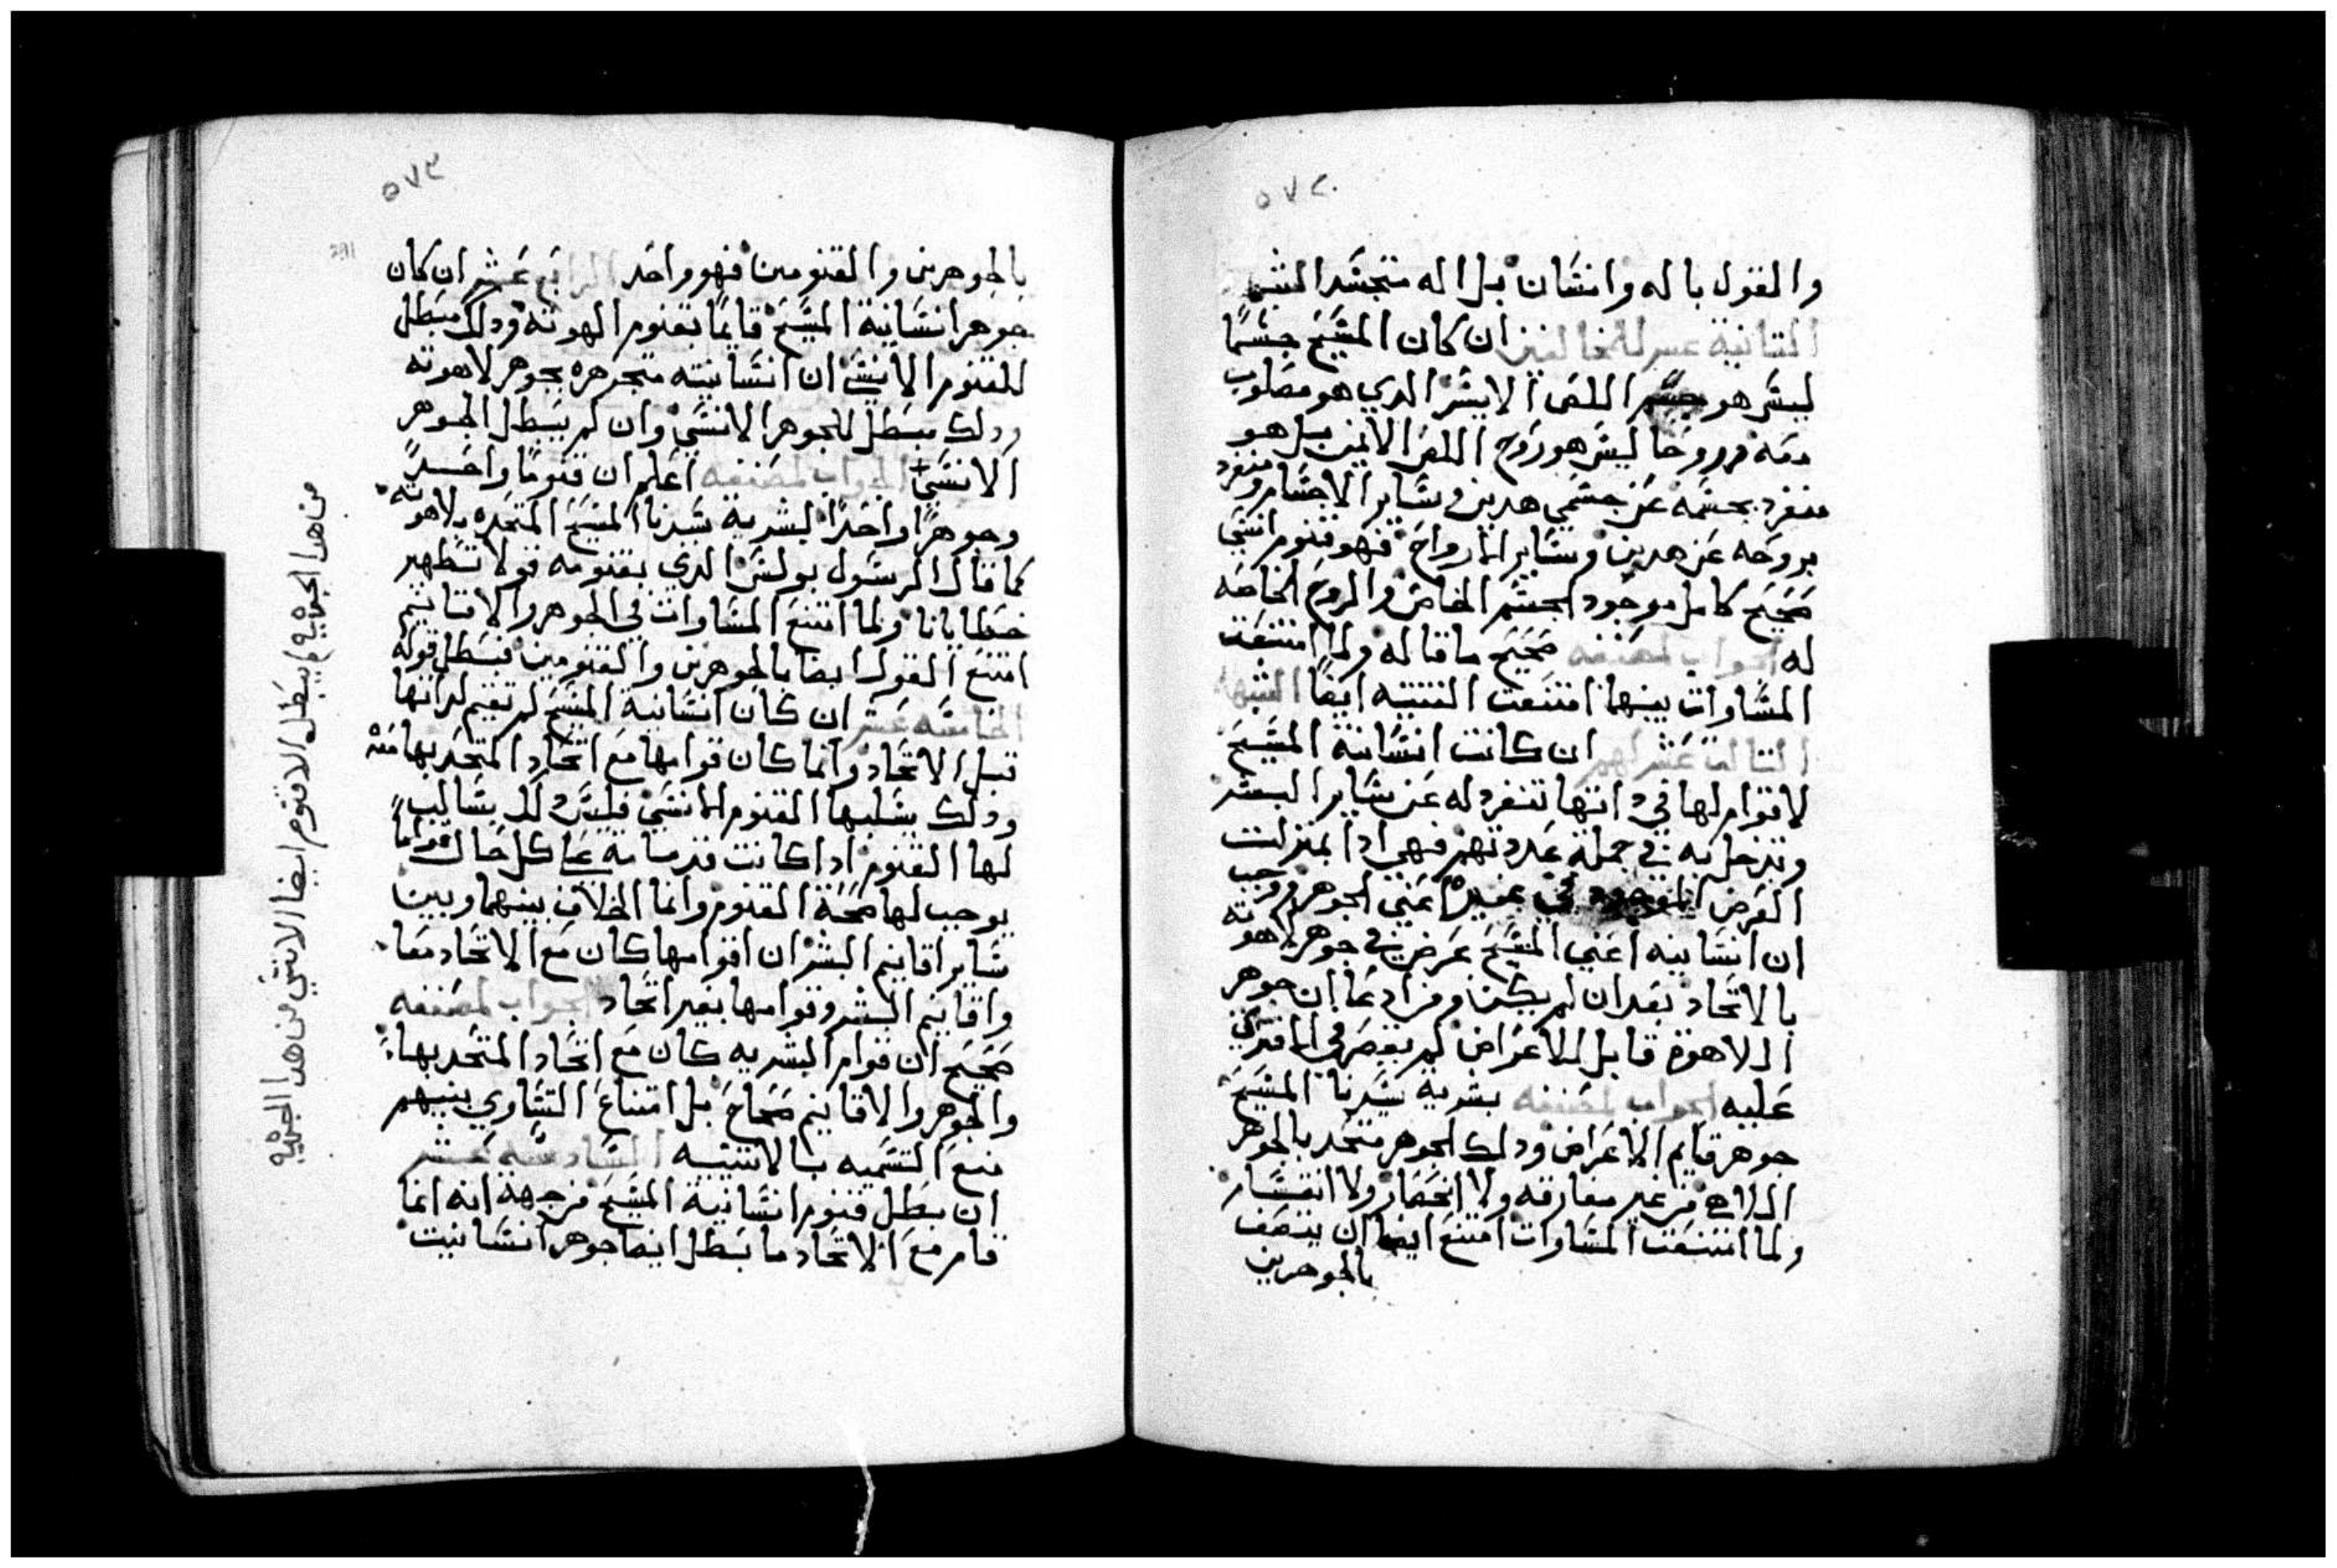 ٥٧٢
والقول باله وانسان بل اله متجسد الشبهة
الثانية عشر للمخالفين ان كان المسيح جسمًا
ليس هو جسم اللص الايسر الدي هو مصلوب
معه وروحا ليس هو روح اللص الايمن بل هو
منفرد بجسمه عن جسمي هدين وساير الاجسام ومنفرد
بروحه عن هدين وساير الارواح فهو قنوم انسي
صحيح كامل موجود الجسم الخاص والروح الخاصه
له الجواب لمصنفه صحيح ما قاله ولما امتنعت
المساوات بينها امتنعت التتنيه ايضًا الشبهة
التالتة عشر لهم ان كانت انسانية المسيح
لا قوام لها في داتها تنفرد له عن ساير البشر
وتدخل به في جملة عددتهم فهي ادا بمنزلت
العرض الموجود في غيره اعني الجوهر ووجب
ان انسانيه اعني المسيح عرض في جوهر لاهوته
بالاتحاد بعد ان لم يكن ومن ادعا ان جوهر
اللاهوة قابل للاعراض لم يقصر في الافتري
عليه الجواب لمصنفه بشرية سيدنا المسيح
جوهر قايم الاعراض ودلك الجوهر متحد بالجوهر
الالاهي من غير مفارقه ولا انحصار ولا انقسار
ولما امتنعت المساوات امتنع ايضا ان يتصف
بالجوهرين
٥٧٣
291
بالجوهرين والقنومين فهو واحد الرابع عشر ان كان
جوهر انسانية المسيح قايمًا بقنوم الهوته ودلك مبطل
للقنوم الانسي ان انسانيته متجوهره بجوهر لاهوته
ودلك مبطل للجوهر الانسي وان لم يبطل الجوهر
الانسي الجواب لمصنفه اعلم ان قنومًا واحدً
وجوهرًا واحدًا لبشرية سيدنا المسيح المتحده بلاهوته
كما قال الرسول بولس الدي بقنومه قولا تطهير
خطايانا ولما امتنع المساوات في الجوهر والاقانيم
امتنع القول ايضا بالجوهرين والقنومين فبطل قوله
الخامسه عشر ان كان انسانية المسيح لم تقيم لداتها
قبل الاتحاد وانما كان قوامها مع اتحاد المتحد بها منه
ودلك يسلبها القنوم الانسي فليس دلك بسالب
لها القنوم ادا كانت قدسامه علي كل حال قوامًا
يوجب لها صحة القنوم وانما الخلاف بينهما وبين
ساير اقانيم البشر ان اقوامها كان مع الاتحاد معا
واقانيم البشر وقوامها بغير اتحاد الجواب لمصنفه
صحيح ان قوام البشريه كان مع اتحاد المتحد بها
والجوهر والاقانيم صحاح بل امتناع التساوي بينهم
منع التسميه بالاتنينية السادسه عشر
ان بطل قنوم انسانية المسيح من جهة انه انما
قام مع الاتحاد ما بطل ايضا جوهر انسانيت
من هدا الجهة يبطل الاقنوم ايضا الانسي من هدا الجهة